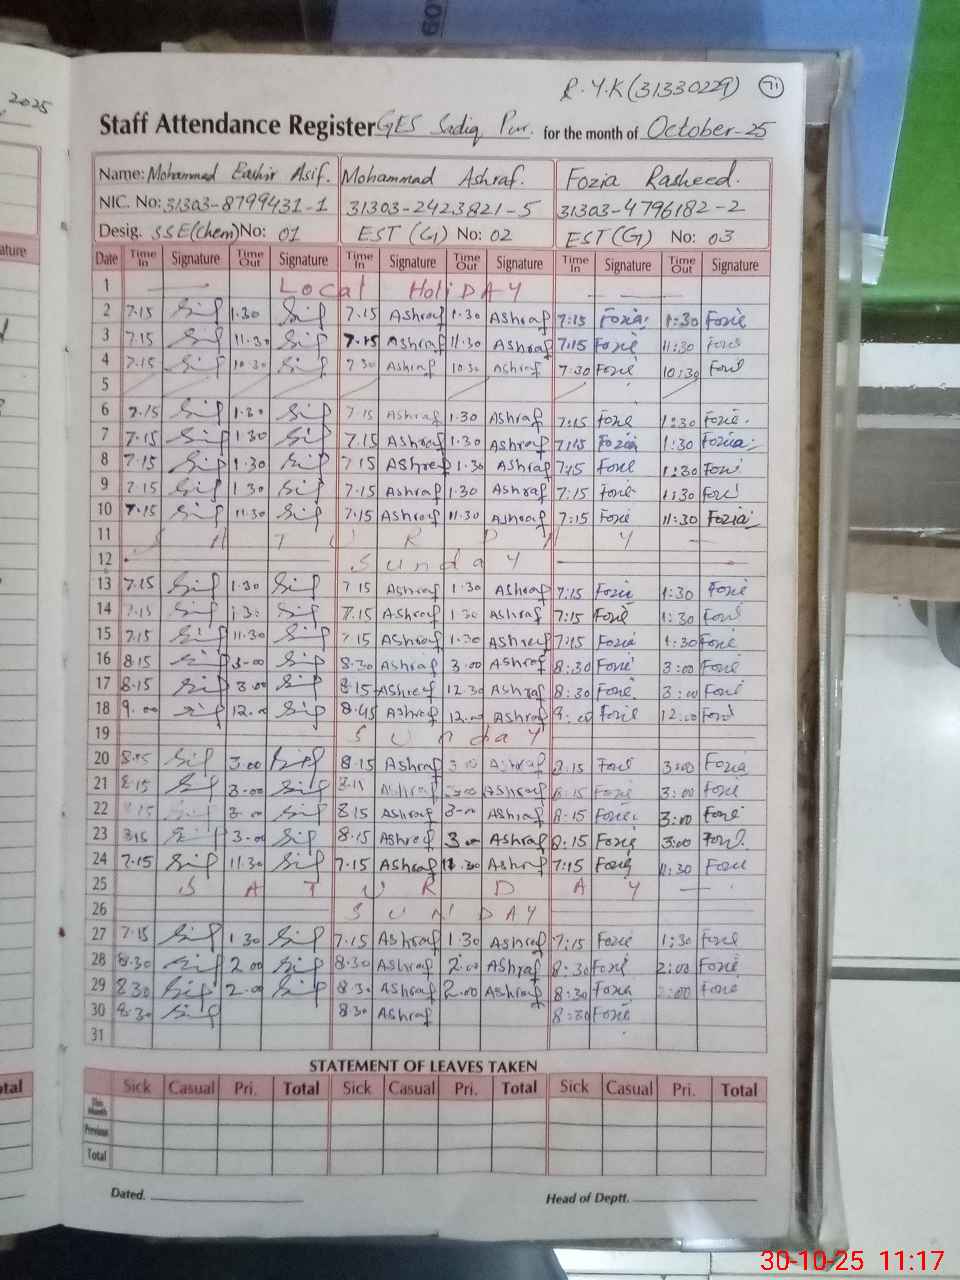 2025
R.Y.K (31330229) 71
Staff Attendance Register GES Sadiq Pur. for the month of October-25
Name: Mohammad Eashir Asif. Mohammad Ashraf. Fozia Rasheed.
NIC. No: 31303-8799431-1 31303-2423821-5 31303-4796182-2
Desig. SSE(Chem) No: 01 EST (G) No: 02 EST (G) No: 03
Date Time In Signature Time Out Signature Time In Signature Time Out Signature Time In Signature Time Out Signature
1 Local HoliDAY
2 7.15 1.30 7.15 Ashraf 1.30 Ashraf 7:15 Fozia 1:30 Fozie
3 7.15 11.30 7.15 Ashraf 11.30 Ashraf 7:15 Fozie 11:30 Fozie
4 7.15 10.30 7.30 Ashraf 10.30 Ashraf 7:30 Fozie 10:30 Fozie
5
6 7.15 1.30 7.15 Ashraf 1.30 Ashraf 7:15 Fozie 1:30 Fozie.
7 7.15 1.30 7.15 Ashraf 1.30 Ashraf 7:15 Fozia 1:30 Fozia
8 7.15 1.30 7.15 Ashraf 1.30 Ashraf 7:15 Fozie 1:30 Fozie
9 7.15 1.30 7.15 Ashraf 1.30 Ashraf 7:15 Fozie 1:30 Fozie
10 7.15 11.30 7.15 Ashraf 11.30 Ashraf 7:15 Fozie 11:30 Fozia
11 S A T U R D A Y
12 Sunday
13 7.15 1.30 7.15 Ashraf 1.30 Ashraf 7:15 Fozie 1:30 Fozie
14 7.15 1.30 7.15 Ashraf 1.30 Ashraf 7:15 Fozie 1:30 Fozie
15 7.15 11.30 7.15 Ashraf 1.30 Ashraf 7:15 Fozia 1:30 Fozie
16 8.15 3.00 8.30 Ashraf 3.00 Ashraf 8:30 Fozie 3:00 Fozie
17 8.15 3.00 8.15 Ashraf 12.30 Ashraf 8:30 Fozie. 3:00 Fozie
18 9.00 12.00 8.45 Ashraf 12.00 Ashraf 9:00 Fozie 12:00 Fozie
19 Sunday
20 8.15 3.00 8.15 Ashraf 3.00 Ashraf 8:15 Fozie 3:00 Fozia
21 8.15 3.00 8.15 Ashraf 3.00 Ashraf 8:15 Fozie 3:00 Fozie
22 8.15 3.00 8.15 Ashraf 3.00 Ashraf 8:15 Fozie 3:00 Fozie
23 8.15 3.00 8.15 Ashraf 3.00 Ashraf 8:15 Fozie 3:00 Fozie
24 7.15 11.30 7.15 Ashraf 11.30 Ashraf 7:15 Fozie 11:30 Fozie
25 S A T U R D A Y
26 SUNDAY
27 7.15 1.30 7.15 Ashraf 1.30 Ashraf 7:15 Fozie 1:30 Fozie
28 8.30 2.00 8.30 Ashraf 2.00 Ashraf 8:30 Fozie 2:00 Fozie
29 8.30 2.00 8.30 Ashraf 2.00 Ashraf 8:30 Fozia 2:00 Fozie
30 8.30 8.30 Ashraf 8:30 Fozie
31
STATEMENT OF LEAVES TAKEN
Sick Casual Pri. Total Sick Casual Pri. Total Sick Casual Pri. Total
This Month
Previous
Total
Dated. Head of Deptt.
30-10-25 11:17